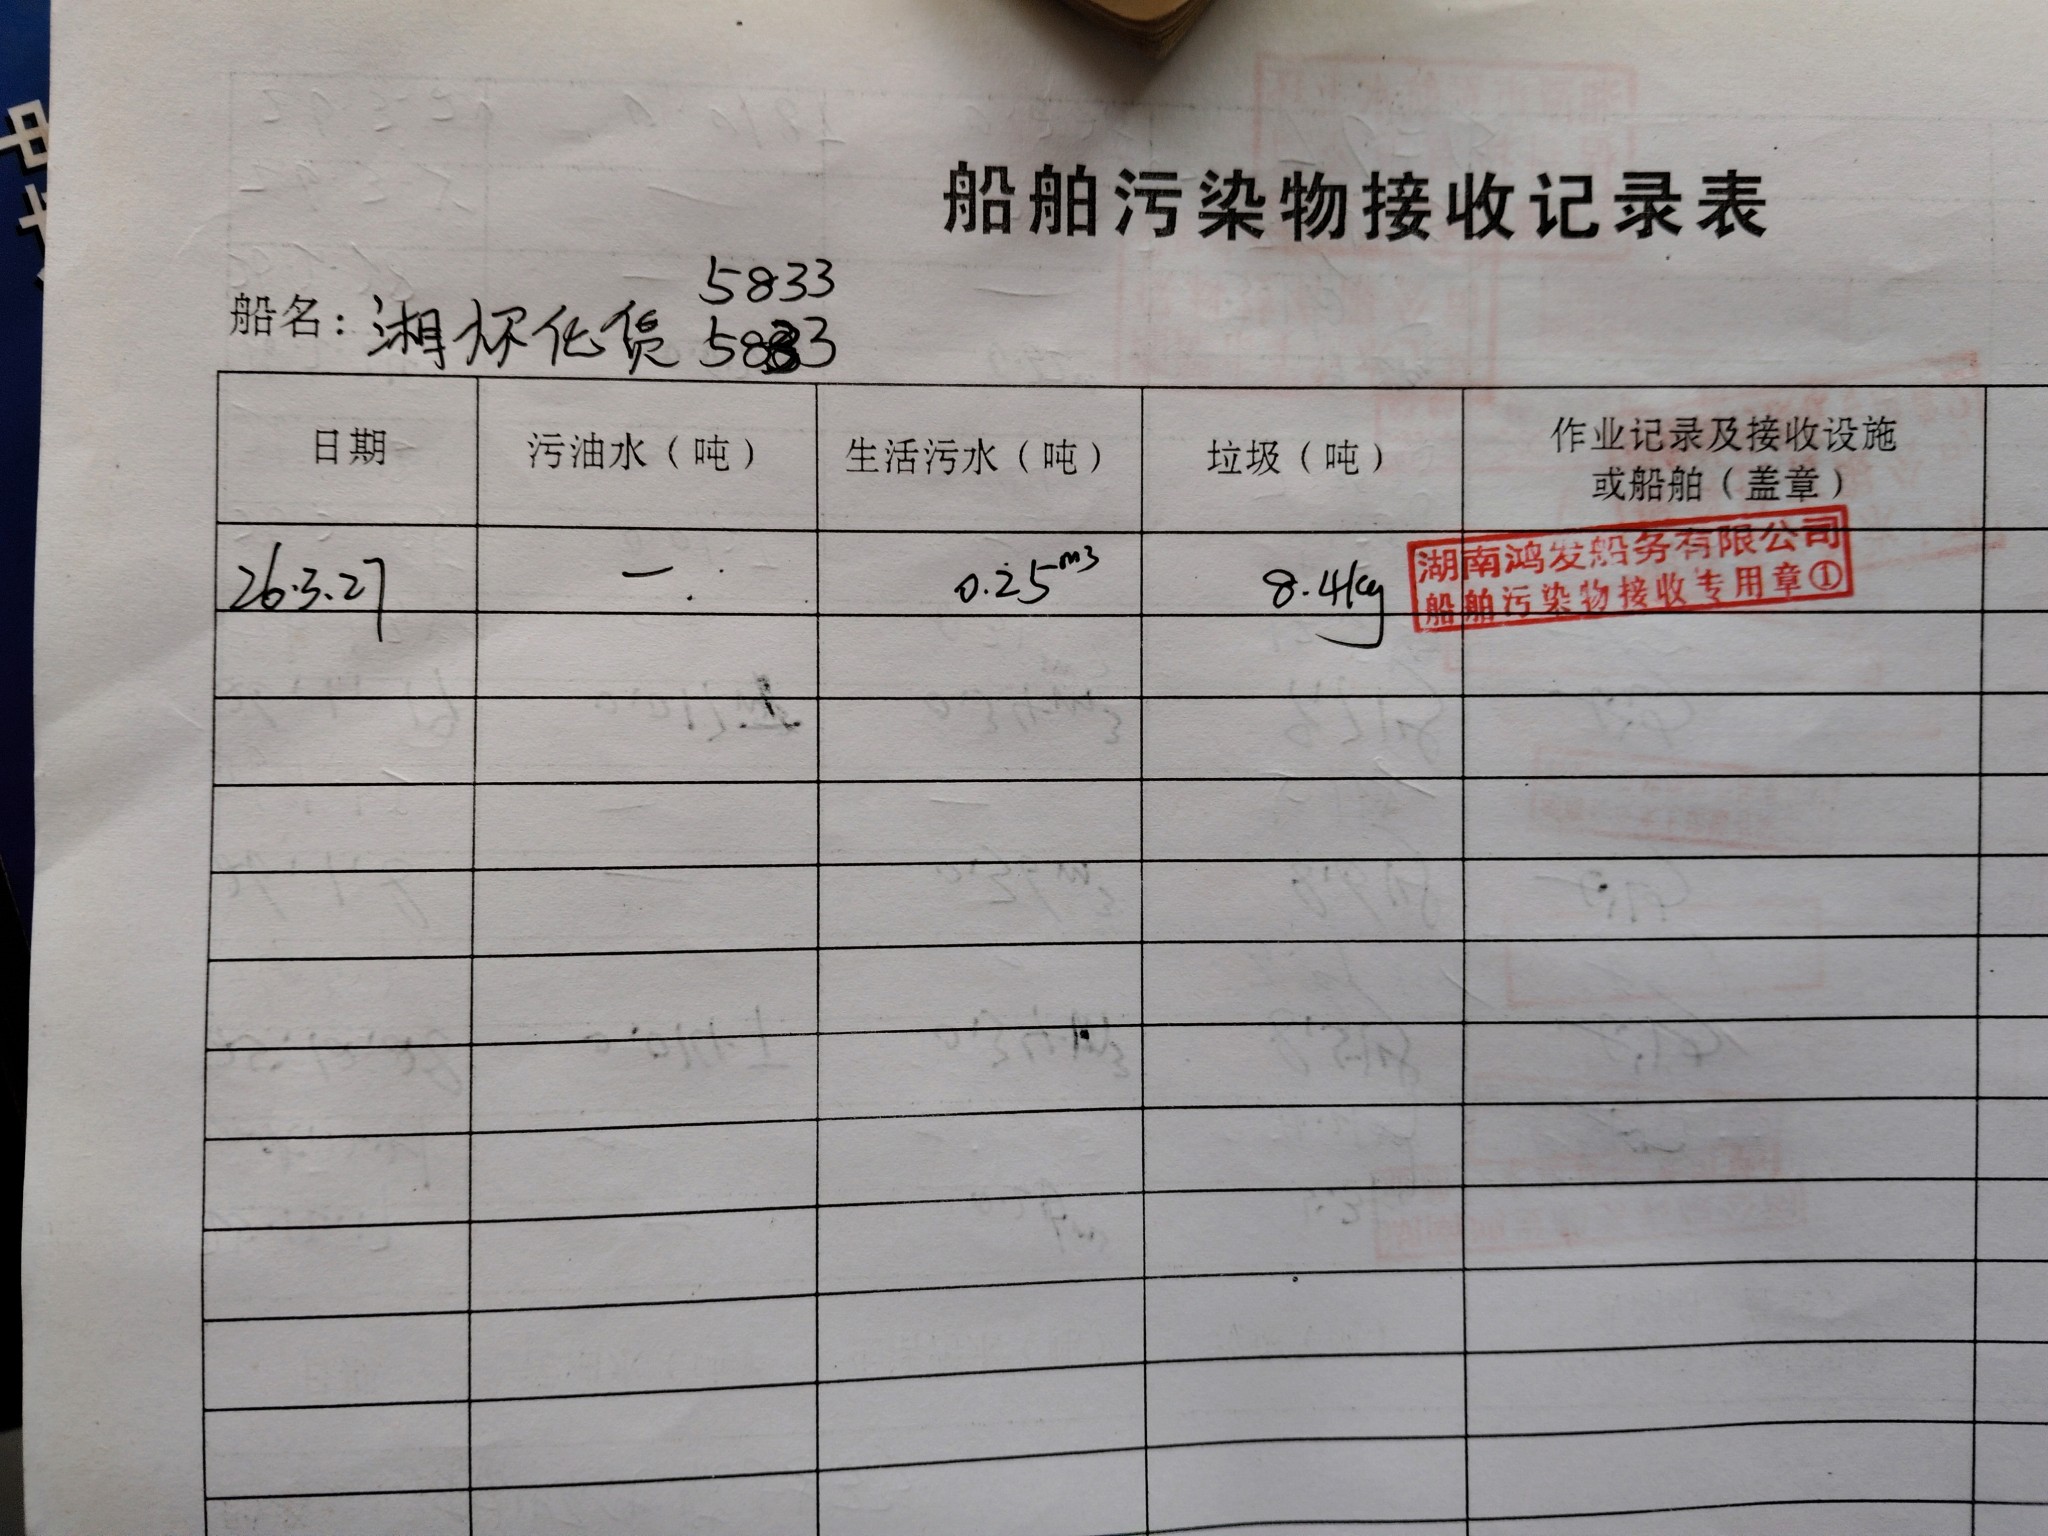 船舶污染物接收记录表
5833
船名：湘怀化货 5833
日期 污油水（吨） 生活污水（吨） 垃圾（吨） 作业记录及接收设施
或船舶（盖章）
26.3.27 — 0.25m3 8.4kg
湖南鸿发船务有限公司
船舶污染物接收专用章①